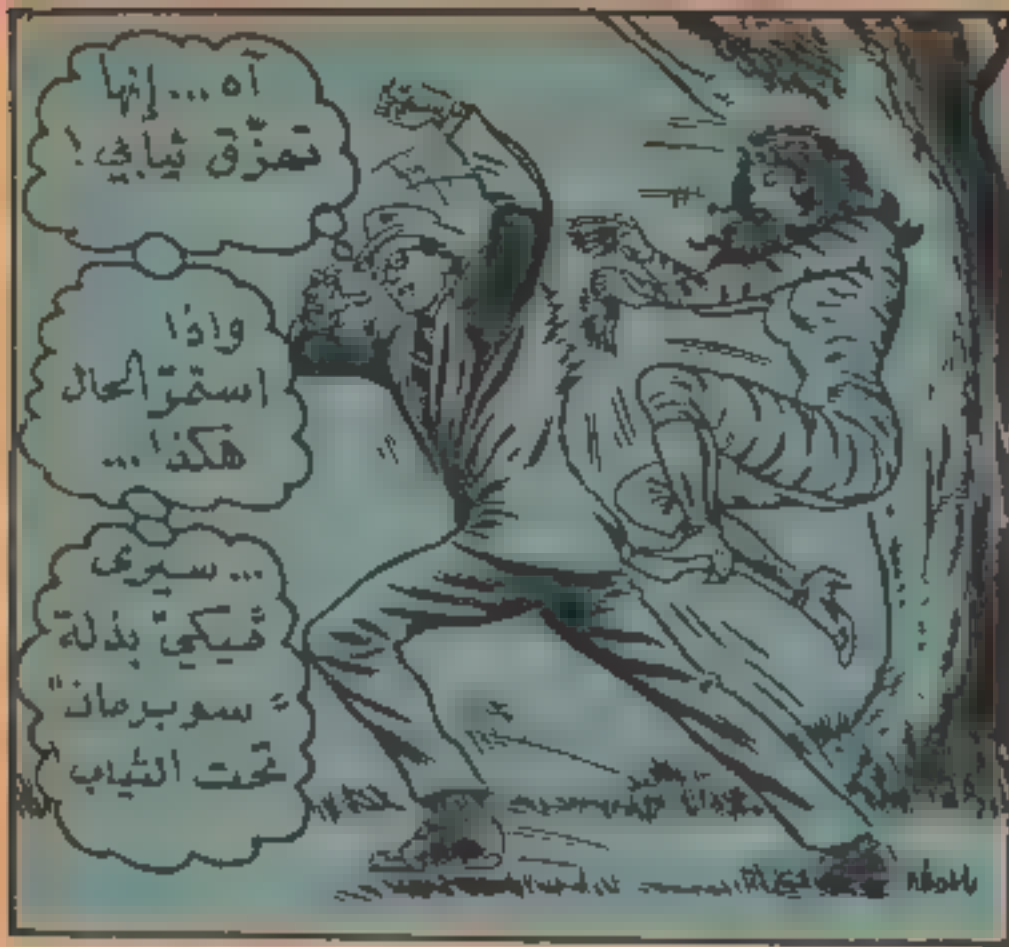 آه ... إنها
تمزّق ثيابي !
واذا
استمرّ الحال
هكذا ...
... سيرى
ڤيكيّ بذلة
" سوبرمان "
تحت الثياب